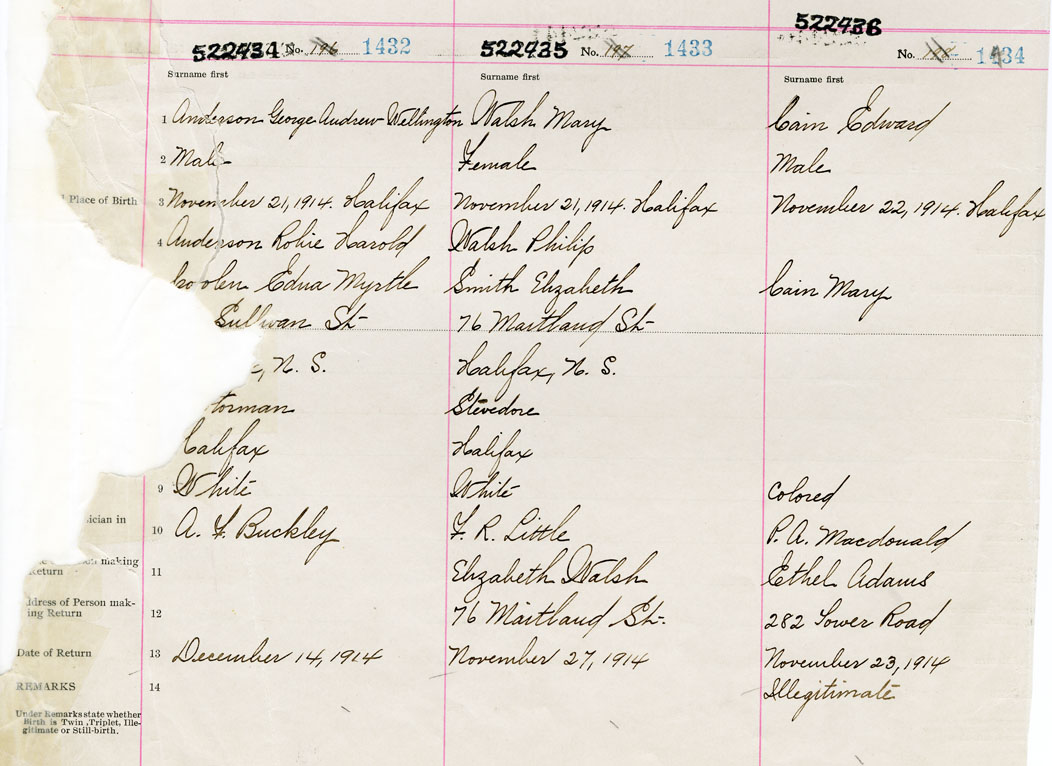 522434 No. 196 1432 522435 No. 197 1433 522436 No. 1434
Surname first Surname first Surname first
1 Anderson George Andrew Wellington Walsh Mary Cain Edward
2 Male Female Male
Place of Birth 3 November 21, 1914. Halifax November 21, 1914. Halifax November 22, 1914. Halifax
4 Anderson Robie Harold Walsh Philip
Edna Myrtle Smith Elizabeth Cain Mary
Sullivan St- 76 Maitland St-
N. S. Halifax, N. S.
torman Stevedore
Halifax Halifax
9 White White Colored
ician in 10 A. F. Buckley F. R. Little P. A. Macdonald
making
Return 11 Elizabeth Walsh Ethel Adams
ddress of Person mak-
ing Return 12 76 Maitland St-. 282 Tower Road
Date of Return 13 December 14, 1914 November 27, 1914 November 23, 1914
REMARKS 14 Illegitimate
Under Remarks state whether
Birth is Twin, Triplet, Ille-
gitimate or Still-birth.